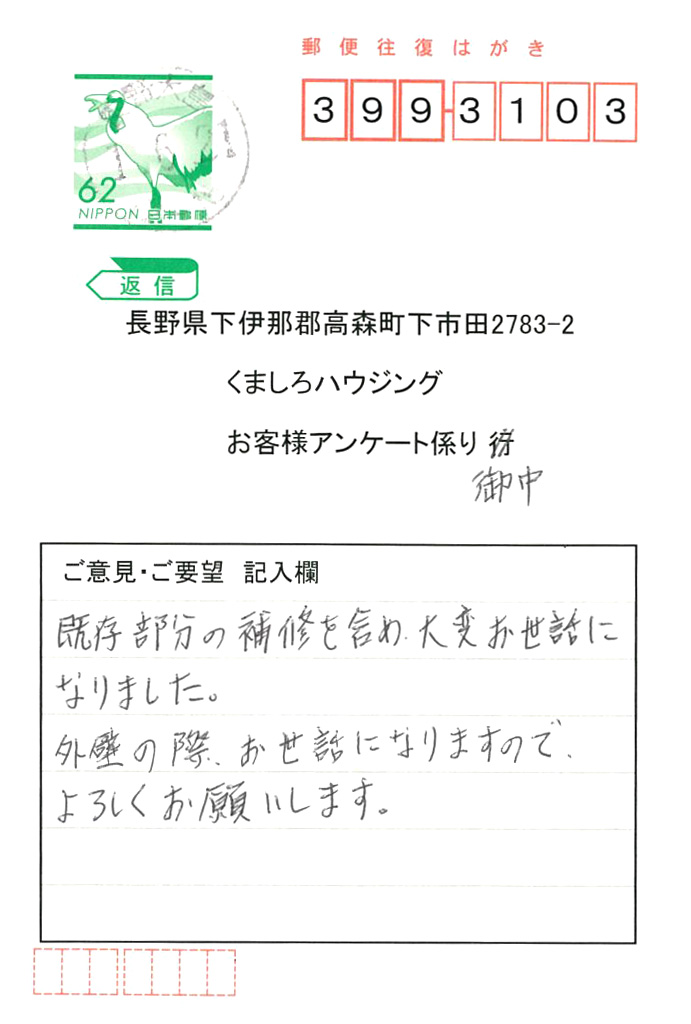 郵便往復はがき
399-3103
62
NIPPON 日本郵便
返信
長野県下伊那郡高森町下市田2783-2
くましろハウジング
お客様アンケート係り 行
御中
ご意見・ご要望 記入欄
既存部分の補修を含め、大変お世話に
なりました。
外壁の際、お世話になりますので、
よろしくお願いします。